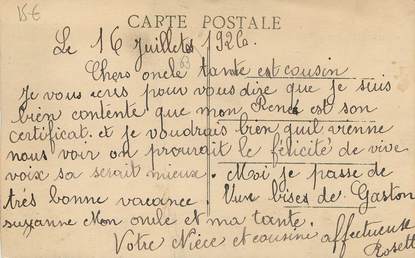 15€
CARTE POSTALE
Le 16 Juillets 1926.
Chers oncle tante est cousin
Je vous ecris pour vous dire que je suis
bien contente que mon René est son
certificat. et je voudrais bien quil vienne
nous voir on prourait le félicité de vive
voix sa serait mieux. Moi je passe de
trés bonne vacance. Une bises de Gaston
suzanne Mon oncle et ma tante.
Votre Niéce et cousine affectueuse
Rosett